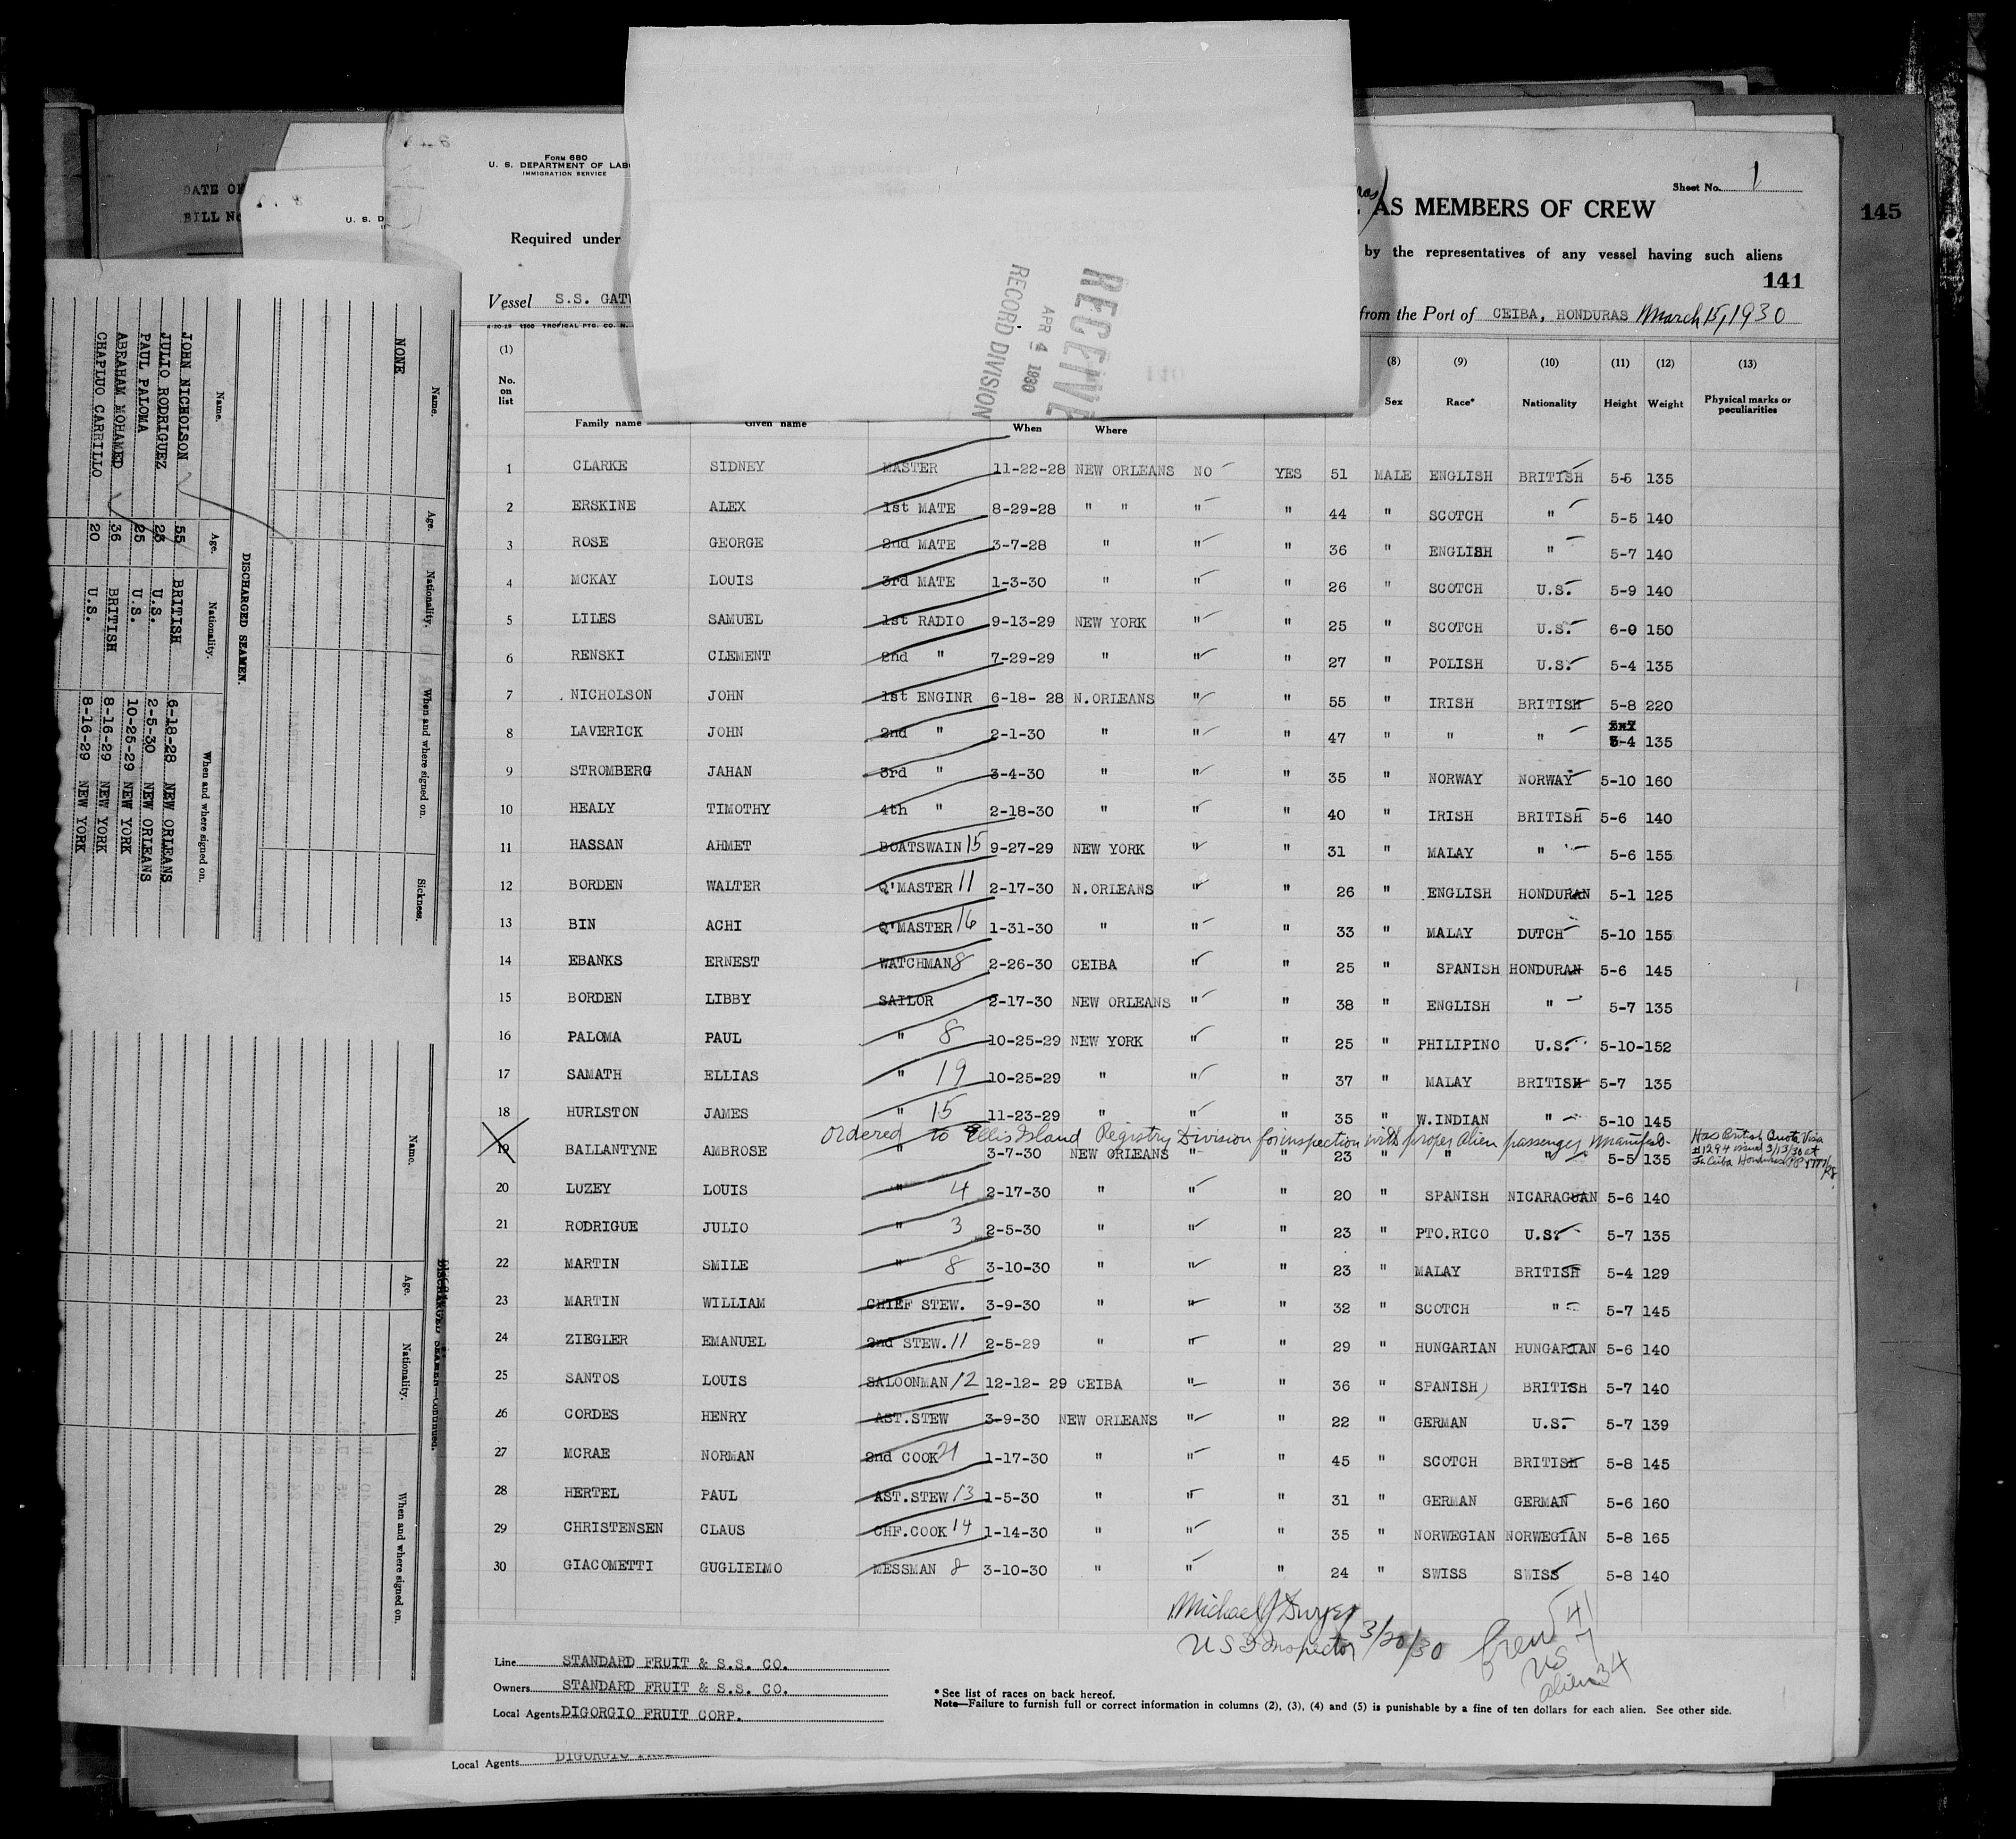 FORM 680
U. S. DEPARTMENT OF LAB
IMMIGRATION SERVICE
Sheet No. 1
AS MEMBERS OF CREW
145
Required under
by the representatives of any vessel having such aliens
141
Vessel S.S. GAT
from the Port of CEIBA, HONDURAS March 15, 1930
RECEIVE
APR 4 1930
RECORD DIVISION
DATE OF
BILL No
U. S. D
(1) (8) (9) (10) (11) (12) (13)
No. on list Family name Given name When Where Sex Race* Nationality Height Weight Physical marks or peculiarities
1 CLARKE SIDNEY MASTER 11-22-28 NEW ORLEANS NO YES 51 MALE ENGLISH BRITISH 5-6 135
2 ERSKINE ALEX 1st MATE 8-29-28 " " " " 44 " SCOTCH " 5-5 140
3 ROSE GEORGE 2nd MATE 3-7-28 " " " 36 " ENGLISH " 5-7 140
4 MCKAY LOUIS 3rd MATE 1-3-30 " " " 26 " SCOTCH U.S. 5-9 140
5 LILES SAMUEL 1st RADIO 9-13-29 NEW YORK " " 25 " SCOTCH U.S. 6-0 150
6 RENSKI CLEMENT 2nd " 7-29-29 " " " 27 " POLISH U.S. 5-4 135
7 NICHOLSON JOHN 1st ENGINR 6-18- 28 N.ORLEANS " " 55 " IRISH BRITISH 5-8 220
8 LAVERICK JOHN 2nd " 2-1-30 " " " 47 " " " 5-4 135
9 STROMBERG JAHAN 3rd " 3-4-30 " " " 35 " NORWAY NORWAY 5-10 160
10 HEALY TIMOTHY 4th " 2-18-30 " " " 40 " IRISH BRITISH 5-6 140
11 HASSAN AHMET BOATSWAIN 15 9-27-29 NEW YORK " " 31 " MALAY " 5-6 155
12 BORDEN WALTER Q'MASTER 11 2-17-30 N.ORLEANS " " 26 " ENGLISH HONDURAN 5-1 125
13 BIN ACHI Q'MASTER 16 1-31-30 " " " 33 " MALAY DUTCH 5-10 155
14 EBANKS ERNEST WATCHMAN 8 2-26-30 CEIBA " " 25 " SPANISH HONDURAN 5-6 145
15 BORDEN LIBBY SAILOR 2-17-30 NEW ORLEANS " " 38 " ENGLISH " 5-7 135
16 PALOMA PAUL " 8 10-25-29 NEW YORK " " 25 " PHILIPINO U.S. 5-10-152
17 SAMATH ELLIAS " 19 10-25-29 " " " 37 " MALAY BRITISH 5-7 135
18 HURLSTON JAMES " 15 11-23-29 " " " 35 " W.INDIAN " 5-10 145
Ordered to Ellis Island Registry Division for inspection with proper alien passenger manifest.
19 BALLANTYNE AMBROSE " 3-7-30 NEW ORLEANS " " 23 " " " 5-5 135 Has British Quota Visa #1294 issued 3/13/30 at La Ceiba Honduras
20 LUZEY LOUIS " 4 2-17-30 " " " 20 " SPANISH NICARAGUAN 5-6 140
21 RODRIGUE JULIO " 3 2-5-30 " " " 23 " PTO.RICO U.S. 5-7 135
22 MARTIN SMILE " 8 3-10-30 " " " 23 " MALAY BRITISH 5-4 129
23 MARTIN WILLIAM CHIEF STEW. 3-9-30 " " " 32 " SCOTCH " 5-7 145
24 ZIEGLER EMANUEL 2nd STEW. 11 2-5-29 " " " 29 " HUNGARIAN HUNGARIAN 5-6 140
25 SANTOS LOUIS SALOONMAN 12 12-12- 29 CEIBA " " 36 " SPANISH BRITISH 5-7 140
26 CORDES HENRY AST.STEW 3-9-30 NEW ORLEANS " " 22 " GERMAN U.S. 5-7 139
27 MCRAE NORMAN 2nd COOK 21 1-17-30 " " " 45 " SCOTCH BRITISH 5-8 145
28 HERTEL PAUL AST.STEW 13 1-5-30 " " " 31 " GERMAN GERMAN 5-6 160
29 CHRISTENSEN CLAUS CHF.COOK 14 1-14-30 " " " 35 " NORWEGIAN NORWEGIAN 5-8 165
30 GIACOMETTI GUGLIELMO MESSMAN 8 3-10-30 " " " 24 " SWISS SWISS 5-8 140
US Inspector 3/20/30
Crew 41
US 7
alien 34
Line STANDARD FRUIT & S.S. CO.
Owners STANDARD FRUIT & S.S. CO.
Local Agents DIGORGIO FRUIT CORP.
* See list of races on back hereof.
Note—Failure to furnish full or correct information in columns (2), (3), (4) and (5) is punishable by a fine of ten dollars for each alien. See other side.
Local Agents
Name. Age. Nationality. When and where signed on. Sickness.
NONE
DISCHARGED SEAMEN.
Name. Age. Nationality. When and where signed on.
JOHN NICHOLSON 55 BRITISH 6-18-28 NEW ORLEANS
JULIO RODRIGUEZ 23 U.S. 2-5-30 NEW ORLEANS
PAUL PALOMA 25 U.S. 10-25-29 NEW YORK
ABRAHAM MOHAMED 36 BRITISH 8-16-29 NEW YORK
CHAPLUO CARRILLO 20 U.S. 8-16-29 NEW YORK
DISCHARGED SEAMEN—Continued.
Name. Age. Nationality. When and where signed on.